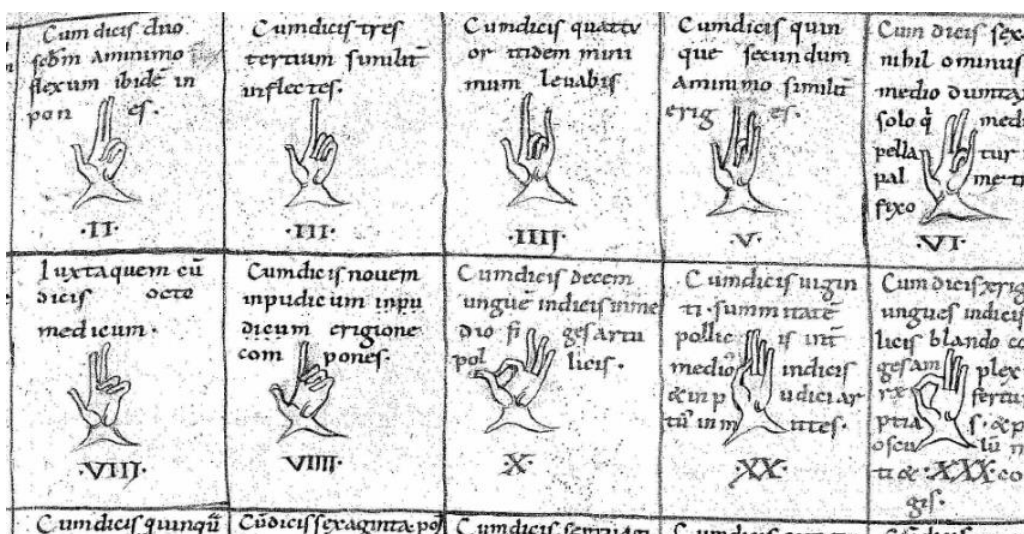 Cum dicis duo
scdm aminimo
flexum ibidē in
pon es.
·II·
Cumdicis tres
tertium similit̄
inflectes.
·III·
Cumdicis quattv
or itidem mini
mum levabis
·IIIJ·
Cumdicis quin
que secundum
Aminimo similit̄
erig es.
·V·
Cum dicis sex
nihil ominus
medio dumtax
solo q̄ medi
pella tur
pal me ti
fixo
·VI·
Iuxtaquem cū
dicis octo
medicum·
·VIIJ·
Cumdicis novem
inpudicum inpu
dicum erigione
com pones·
·VIIIJ·
Cumdicis decem
ungue indicis inme
dio fi ges artu
pol licis·
·X·
Cumdicis uigin
ti· summitatē
pollic is int̄
medio indicis
& in p udiciar
tū inm ittes·
·XX·
Cumdicis xrig
ungues indicis
licis blando co
gesam plex
fertu
ptia s· & p
oscu lū
ti & ·XXX· co
gis·
Cumdicis quinqū
Cūdicis sexaginta pol
Cumdicis